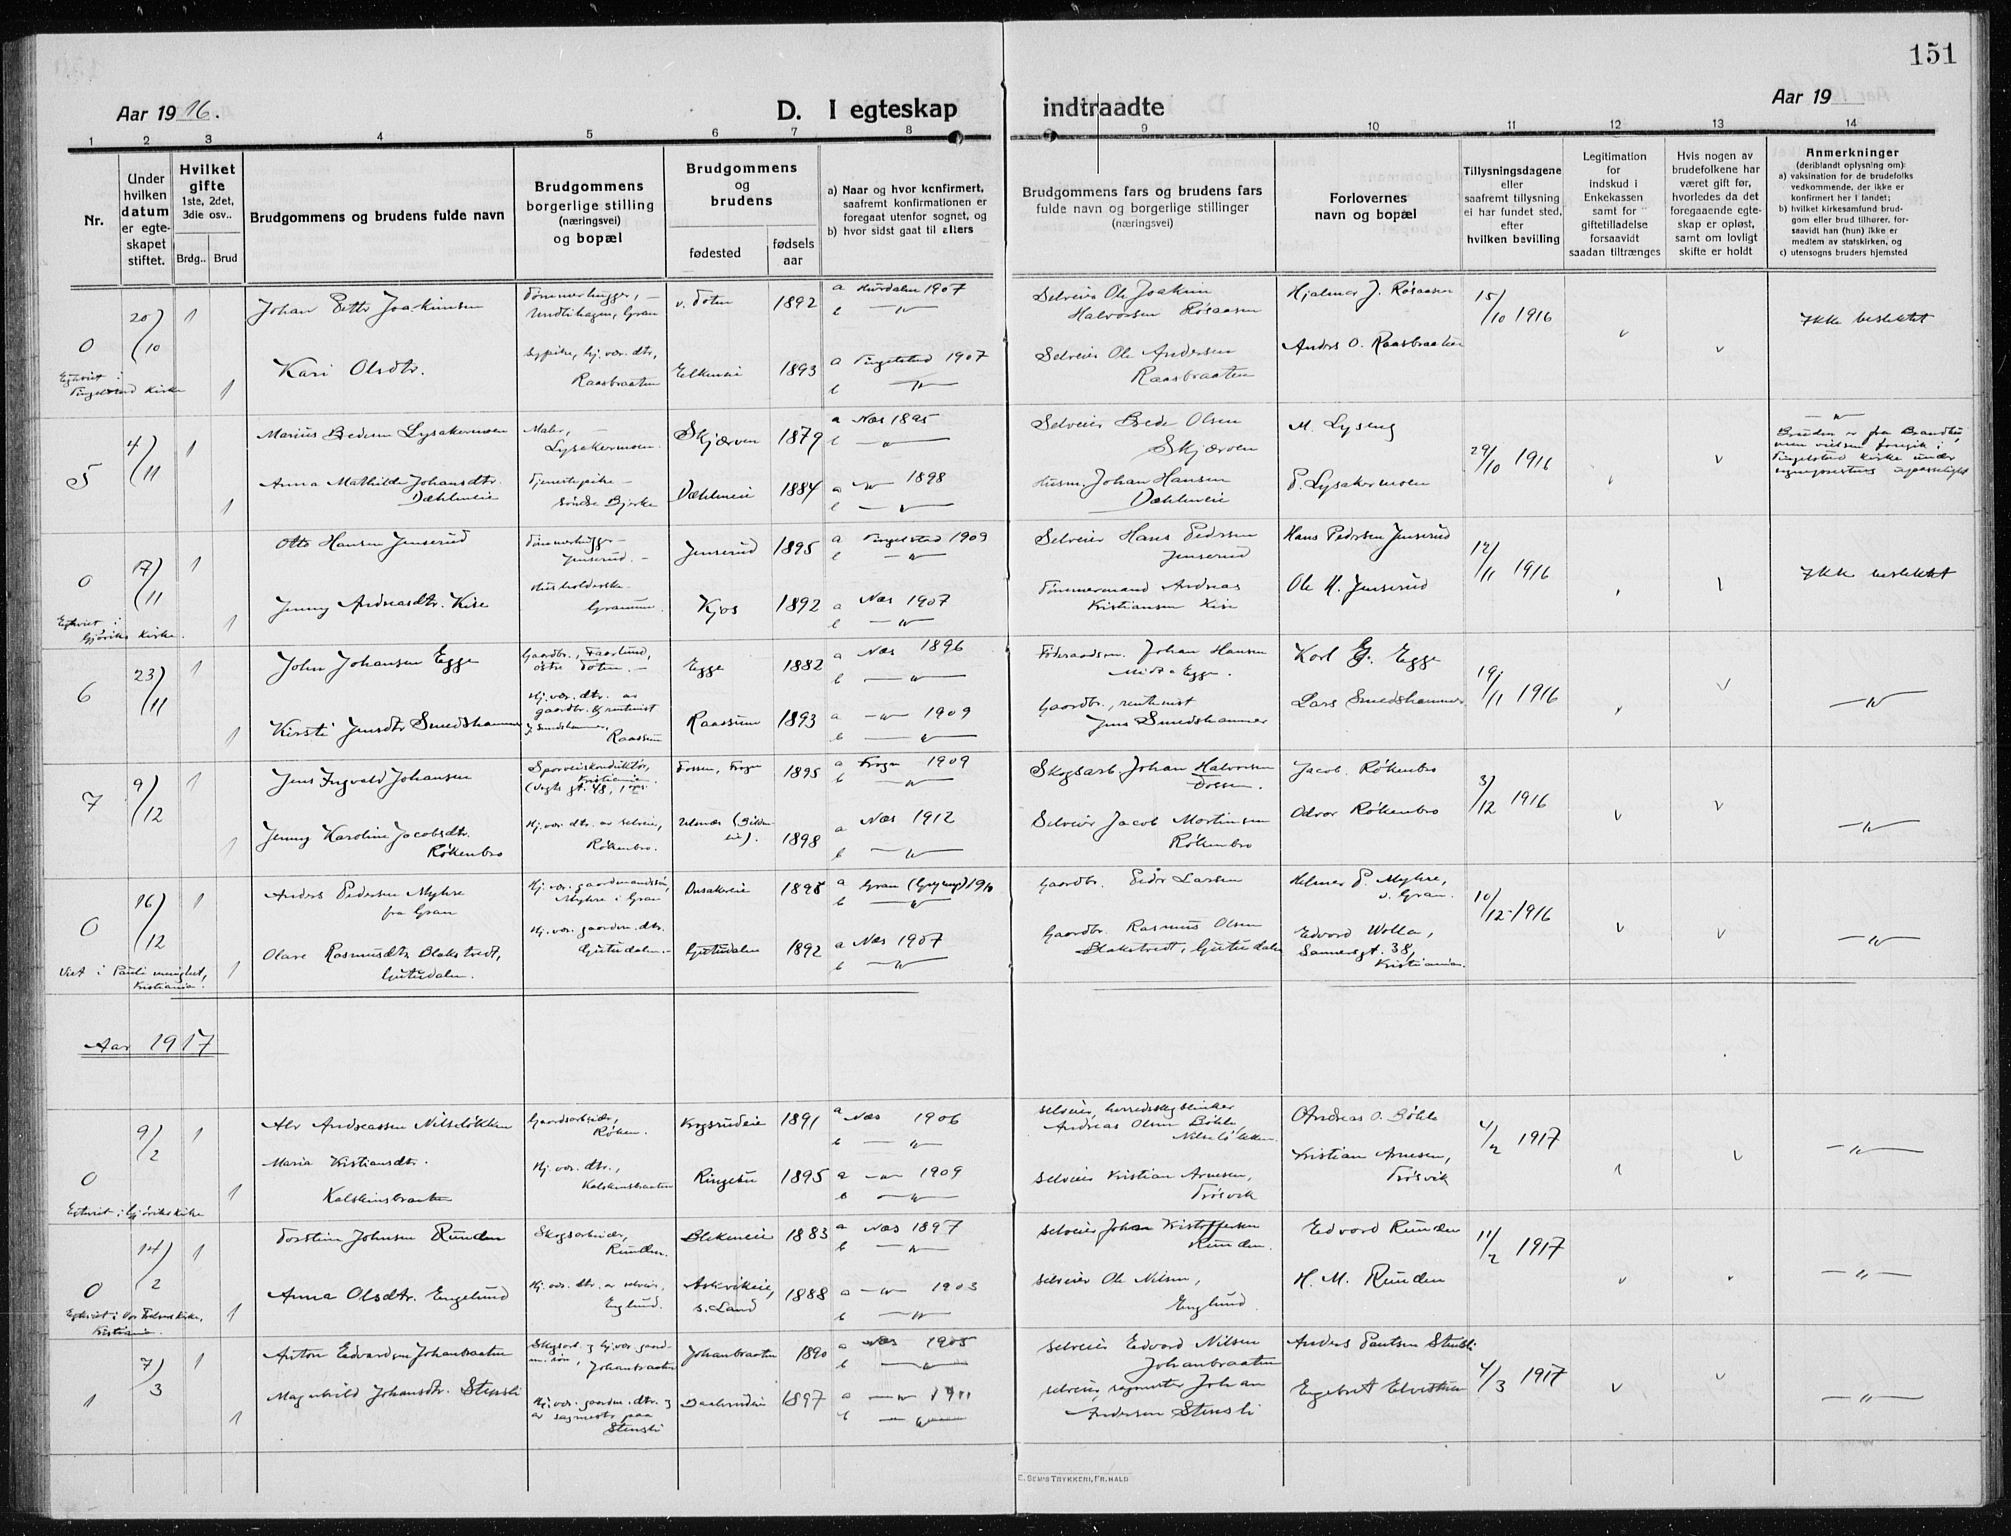 151
Aar 1916.
D. I egteskap
indtraadte
Aar 19
1 2 3 4 5 6 7 8 9 10 11 12 13 14
Nr.
Under hvilken datum er egte-skapet stiftet.
Hvilket gifte 1ste, 2det, 3die osv..
Brdg.. Brud
Brudgommens og brudens fulde navn
Brudgommens borgerlige stilling (næringsvei) og bopæl
Brudgommens og brudens
fødested
fødsels aar
a) Naar og hvor konfirmert, saafremt konfirmationen er foregaat utenfor sognet, og
b) hvor sidst gaat til alters
Brudgommens fars og brudens fars fulde navn og borgerlige stillinger (næringsvei)
Forlovernes navn og bopæl
Tillysningsdagene eller saafremt tillysning ei har fundet sted, efter hvilken bevilling
Legitimation for indskud i Enkekassen samt for giftetilladelse forsaavidt saadan tiltrænges
Hvis nogen av brudefolkene har været gift før, hvorledes da det foregaaende egte-skap er opløst, samt om lovligt skifte er holdt
Anmerkninger
(deriblandt oplysning om):
a) vaksination for de brudefolks vedkommende, der ikke er konfirmert her i landet;
b) hvilket kirkesamfund brud-gom eller brud tilhører, for-saavidt han (hun) ikke er medlem av statskirken, og
c) utensogns bruders hjemsted
0 20/10 1 Johan Petter Joakimsen Tømmerhugger, Gran v. Toten 1892 a Hurdalen 1907 b —"— Selveier Ole Joakim Halvorsen Røsaasen Hjalmar J. Røsaasen 15/10 1916 Ikke beslektet
Egteviet i Tingelstad kirke 1 Kari Olsdtr. Sypike, hj.vær. dtr, Raasbraaten 1893 a Tingelstad 1907 b —"— Selveier Ole Andersen Raasbraaten Anders O. Raasbraaten
5 4/11 1 Marius Bredesen Lysakermoen Maler, Lysakermoen Skjærven 1879 a Næs 1895 b —"— Selveier Brede Olsen Skjærven M. Lyseng 29/10 1916 —"—
Bruden er fra Brandbu, men vielsen foregik i Tingelstad kirke
1 Anna Mathilde Johansdtr. Dæhleneie Tjenestepike Søndre Bjerke Dæhleneie 1884 a —"— 1898 b —"— Husm. Johan Hansen Dæhleneie P. Lysakermoen
0 17/11 1 Otto Hansen Jenserud Tømmerhugger Jenserud. Jenserud 1895 a Tingelstad 1909 b —"— Selveier Hans Pedersen Jenserud Hans Pedersen Jenserud 12/11 1916 Ikke beslektet
Egteviet i Gjøviks kirke. 1 Jenny Andreasdtr. Kise Husholderske Kjos 1892 a Næs 1907 b —"— Tømmermand Andreas Kristiansen Kise Ole H. Jenserud
6 23/11 1 John Johansen Egge Gaardbr., østre Toten. Egge 1882 a Næs 1896 b —"— Føderaadsm. Johan Hansen Egge. Karl G. Egge 19/11 1916 —"—
1 Kirsti Jensdtr. Smedshammer Hj.vær. dtr. av gaardbr. & rentenist J. Smedshammer, Raassum Raassum 1893 a —"— 1909 b —"— Gaardbr., rentenist Jens Smedshammer Lars Smedshammer
7 9/12 1 Jens Ingvald Johansen Sporveiskonduktør, Kristiania (Vogts gt. 48, Dossen, Frogn 1895 a Frogn 1909 b —"— Skogsarb. Johan Halvorsen Dossen. Jacob Røkenbro 3/12 1916 —"—
1 Jenny Karoline Jacobsdtr. Røkenbro Hj.vær. dtr. av selveier, Røkenbro. 1898 a Næs 1912 b —"— Selveier Jacob Mortinsen Røkenbro Odvar Røkenbro
0 16/12 1 Anders Pedersen Myhre fra Gran Hj.vær. gaardmandssøn, Myhre i Gran 1895 a Gran 1910 b —"— Gaardbr. Peder Larsen Helmer P. Myhre, Gran. 10/12 1916 —"—
Viet i Pauli menighet, Kristiania. 1 Olave Rasmusdtr. Blakstvedt, Gjutudalen. Hj.vær. gaardm. dtr. Gjutudalen Gjutudalen 1892 a Næs 1907 b —"— Gaardbr. Rasmus Olsen Blakstvedt, Gjutudalen Edvard Wolla, Sannersgt. 38, Kristiania.
Aar 1917
0 9/2 1 Alv Andreassen Nilseløkken Gaardsarbeider, Røken. Krogsrudeie 1891 a Næs 1906 b —"— selveier, Andreas Olsen Bøhle, Nilseløkken Andreas O. Bøhle 4/2 1917 —"—
Egteviet i Gjøviks kirke 1 Maria Kristiansdtr. Kalskinsbraaten Hj.vær. dtr., Kalskinsbraaten Ringelie 1895 a —"— 1909 b —"— selveier Kristian Arnesen, Trøsvik Kristian Arnesen, Trøsvik
0 14/2 1 Torstein Johnsen Runden Skogsarbeider, Runden. Blekeneie 1883 a Næs 1897 b —"— selveier Johan Kristoffersen Runden. Edvard Runden 11/2 1917 —"—
Egteviet i Vor Frelsers kirke, Kristiania. 1 Anna Olsdtr. Englund Hj.vær. dtr. av selveier, Englund. Askvikeie, s. Land 1888 a —"— 1903 b —"— selveier Ole Nilsen, Englund. H. M. Runden
1 7/3 1 Anton Edvardsen Johanbraaten Skogsarb. & hj.vær. gaardm. søn, Johanbraaten Johanbraaten 1890 a Næs 1905 b —"— selveier Edvard Nilsen Johanbraaten Anders Paulsen Stensli 4/3 1917 —"—
1 Magnhild Johansdtr. Stensli Hj.vær. gaardm. dtr. av sagmester paa Stensli 1897 a —"— 1911 b —"— selveier, sagmester Johan Andersen Stensli Engebret Elvestuen
E. SEM'S TRYKKERI, FR.HALD